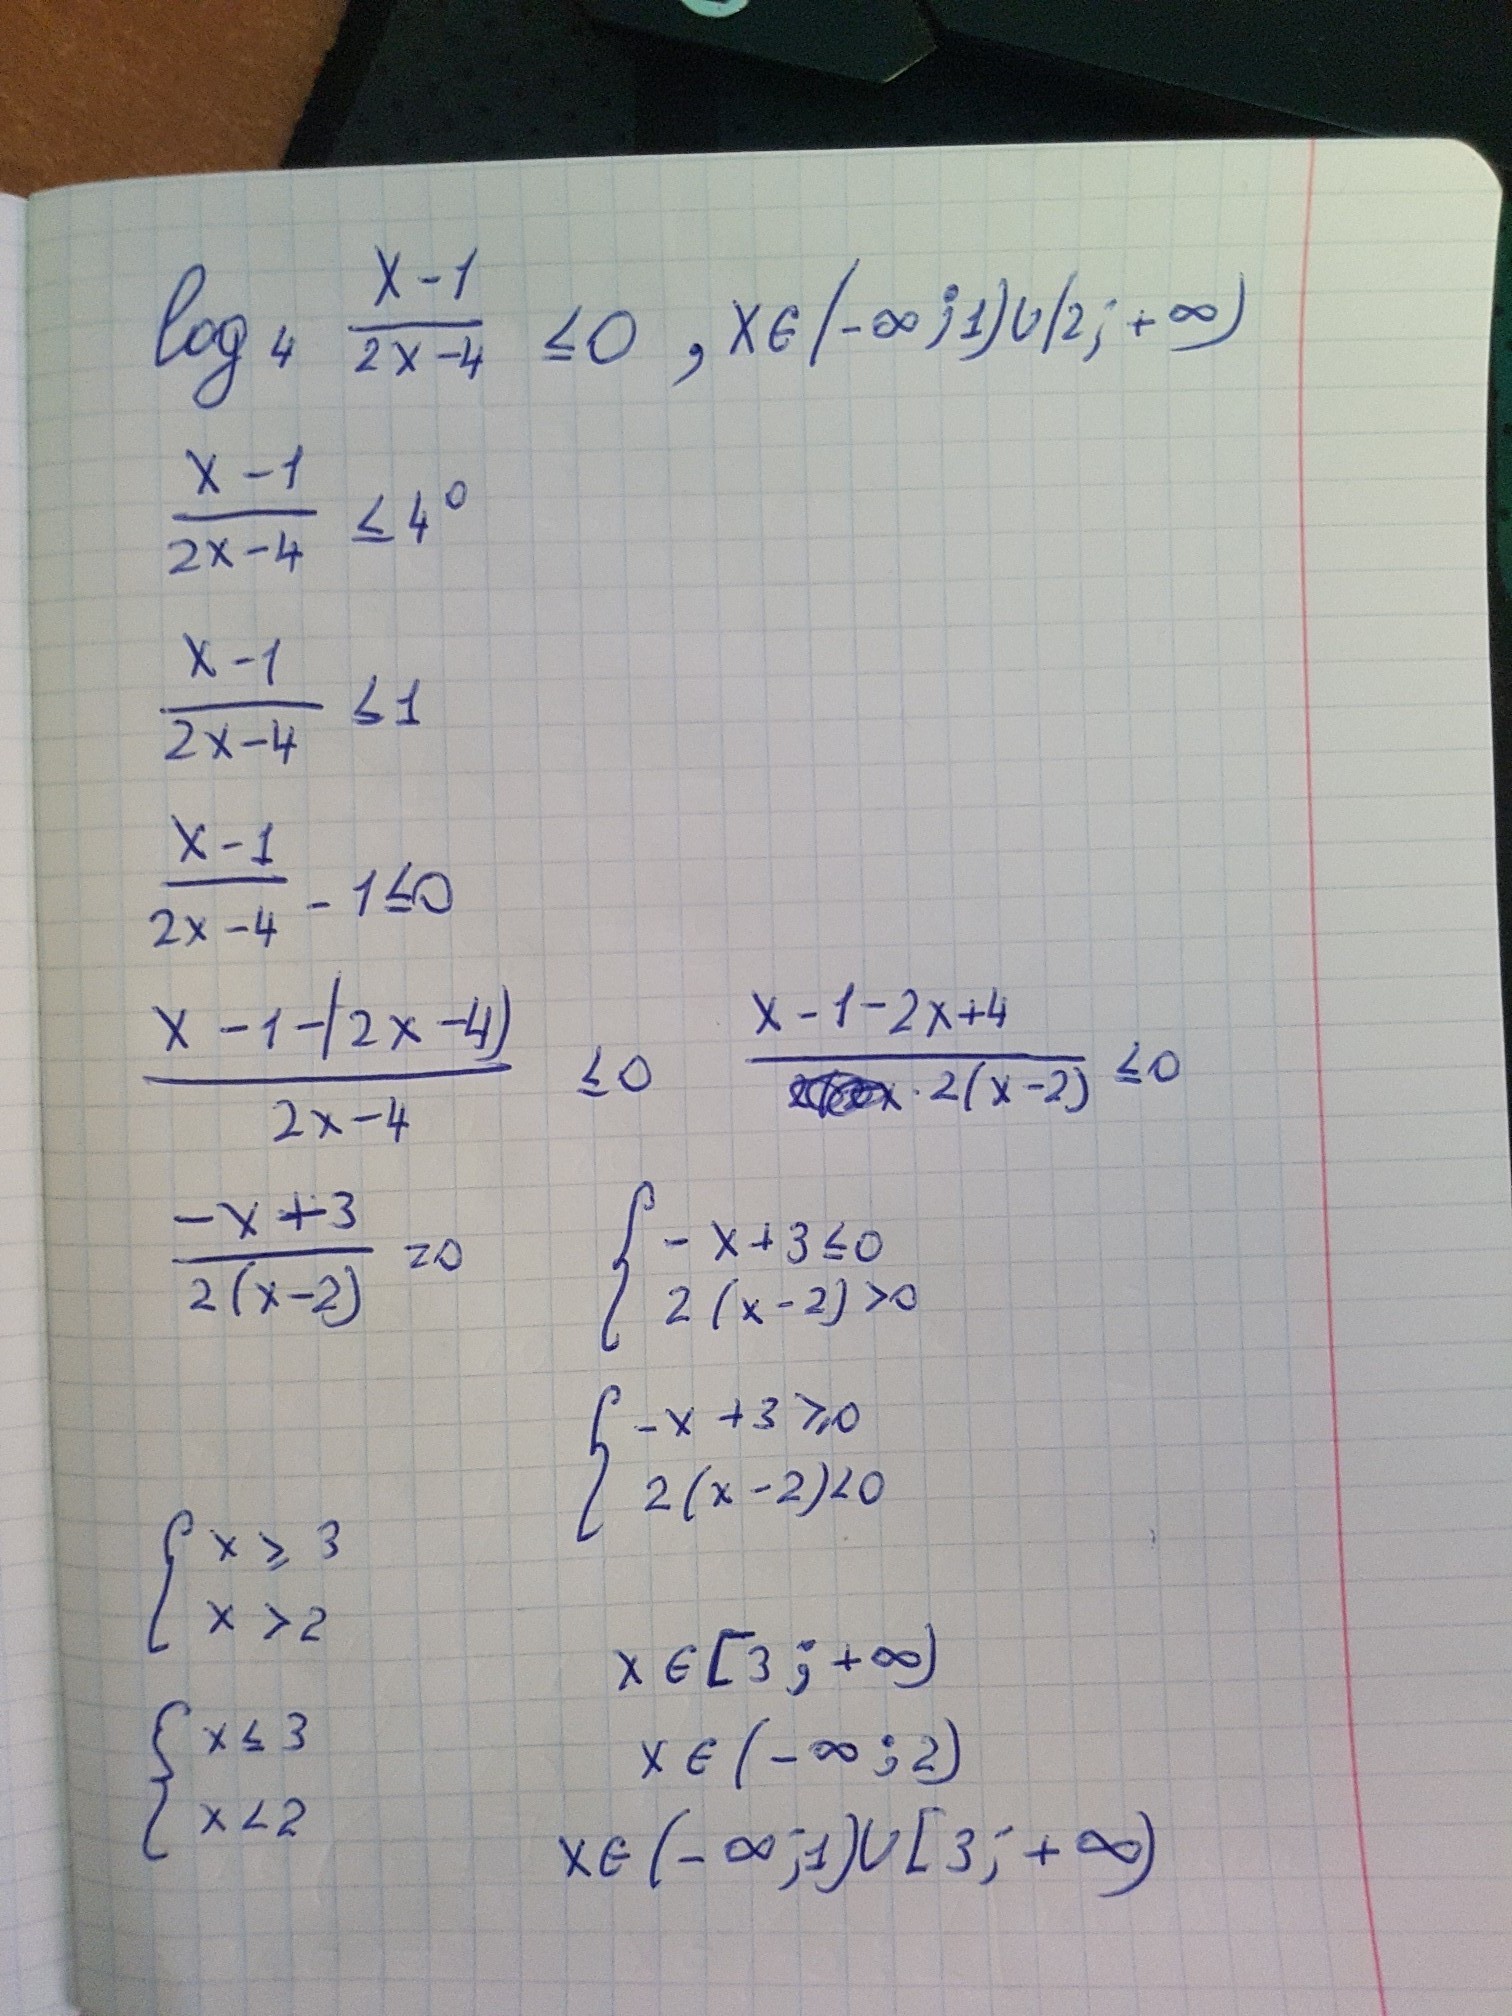 log₄ (x-1)/(2x-4) ≤ 0 , x∈(-∞;1)∪(2;+∞)
(x-1)/(2x-4) ≤ 4⁰
(x-1)/(2x-4) ≤ 1
(x-1)/(2x-4) - 1 ≤ 0
(x-1-(2x-4))/(2x-4) ≤ 0   (x-1-2x+4)/(2(x-2)) ≤ 0
(-x+3)/(2(x-2)) = 0   { -x+3 ≤ 0
2(x-2) > 0
{ -x+3 ≥ 0
2(x-2) < 0
{ x ≥ 3
x > 2
x∈[3;+∞)
{ x ≤ 3
x < 2
x∈(-∞;2)
x∈(-∞;1)∪[3;+∞)